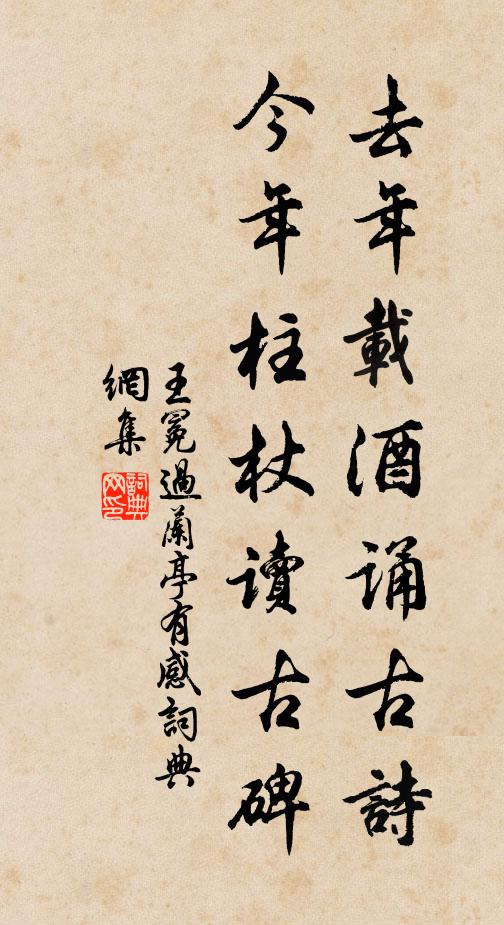 去年載酒誦古詩
今年柱杖讀古碑
王冕過蘭亭有感詞典
網集
詞典
网印